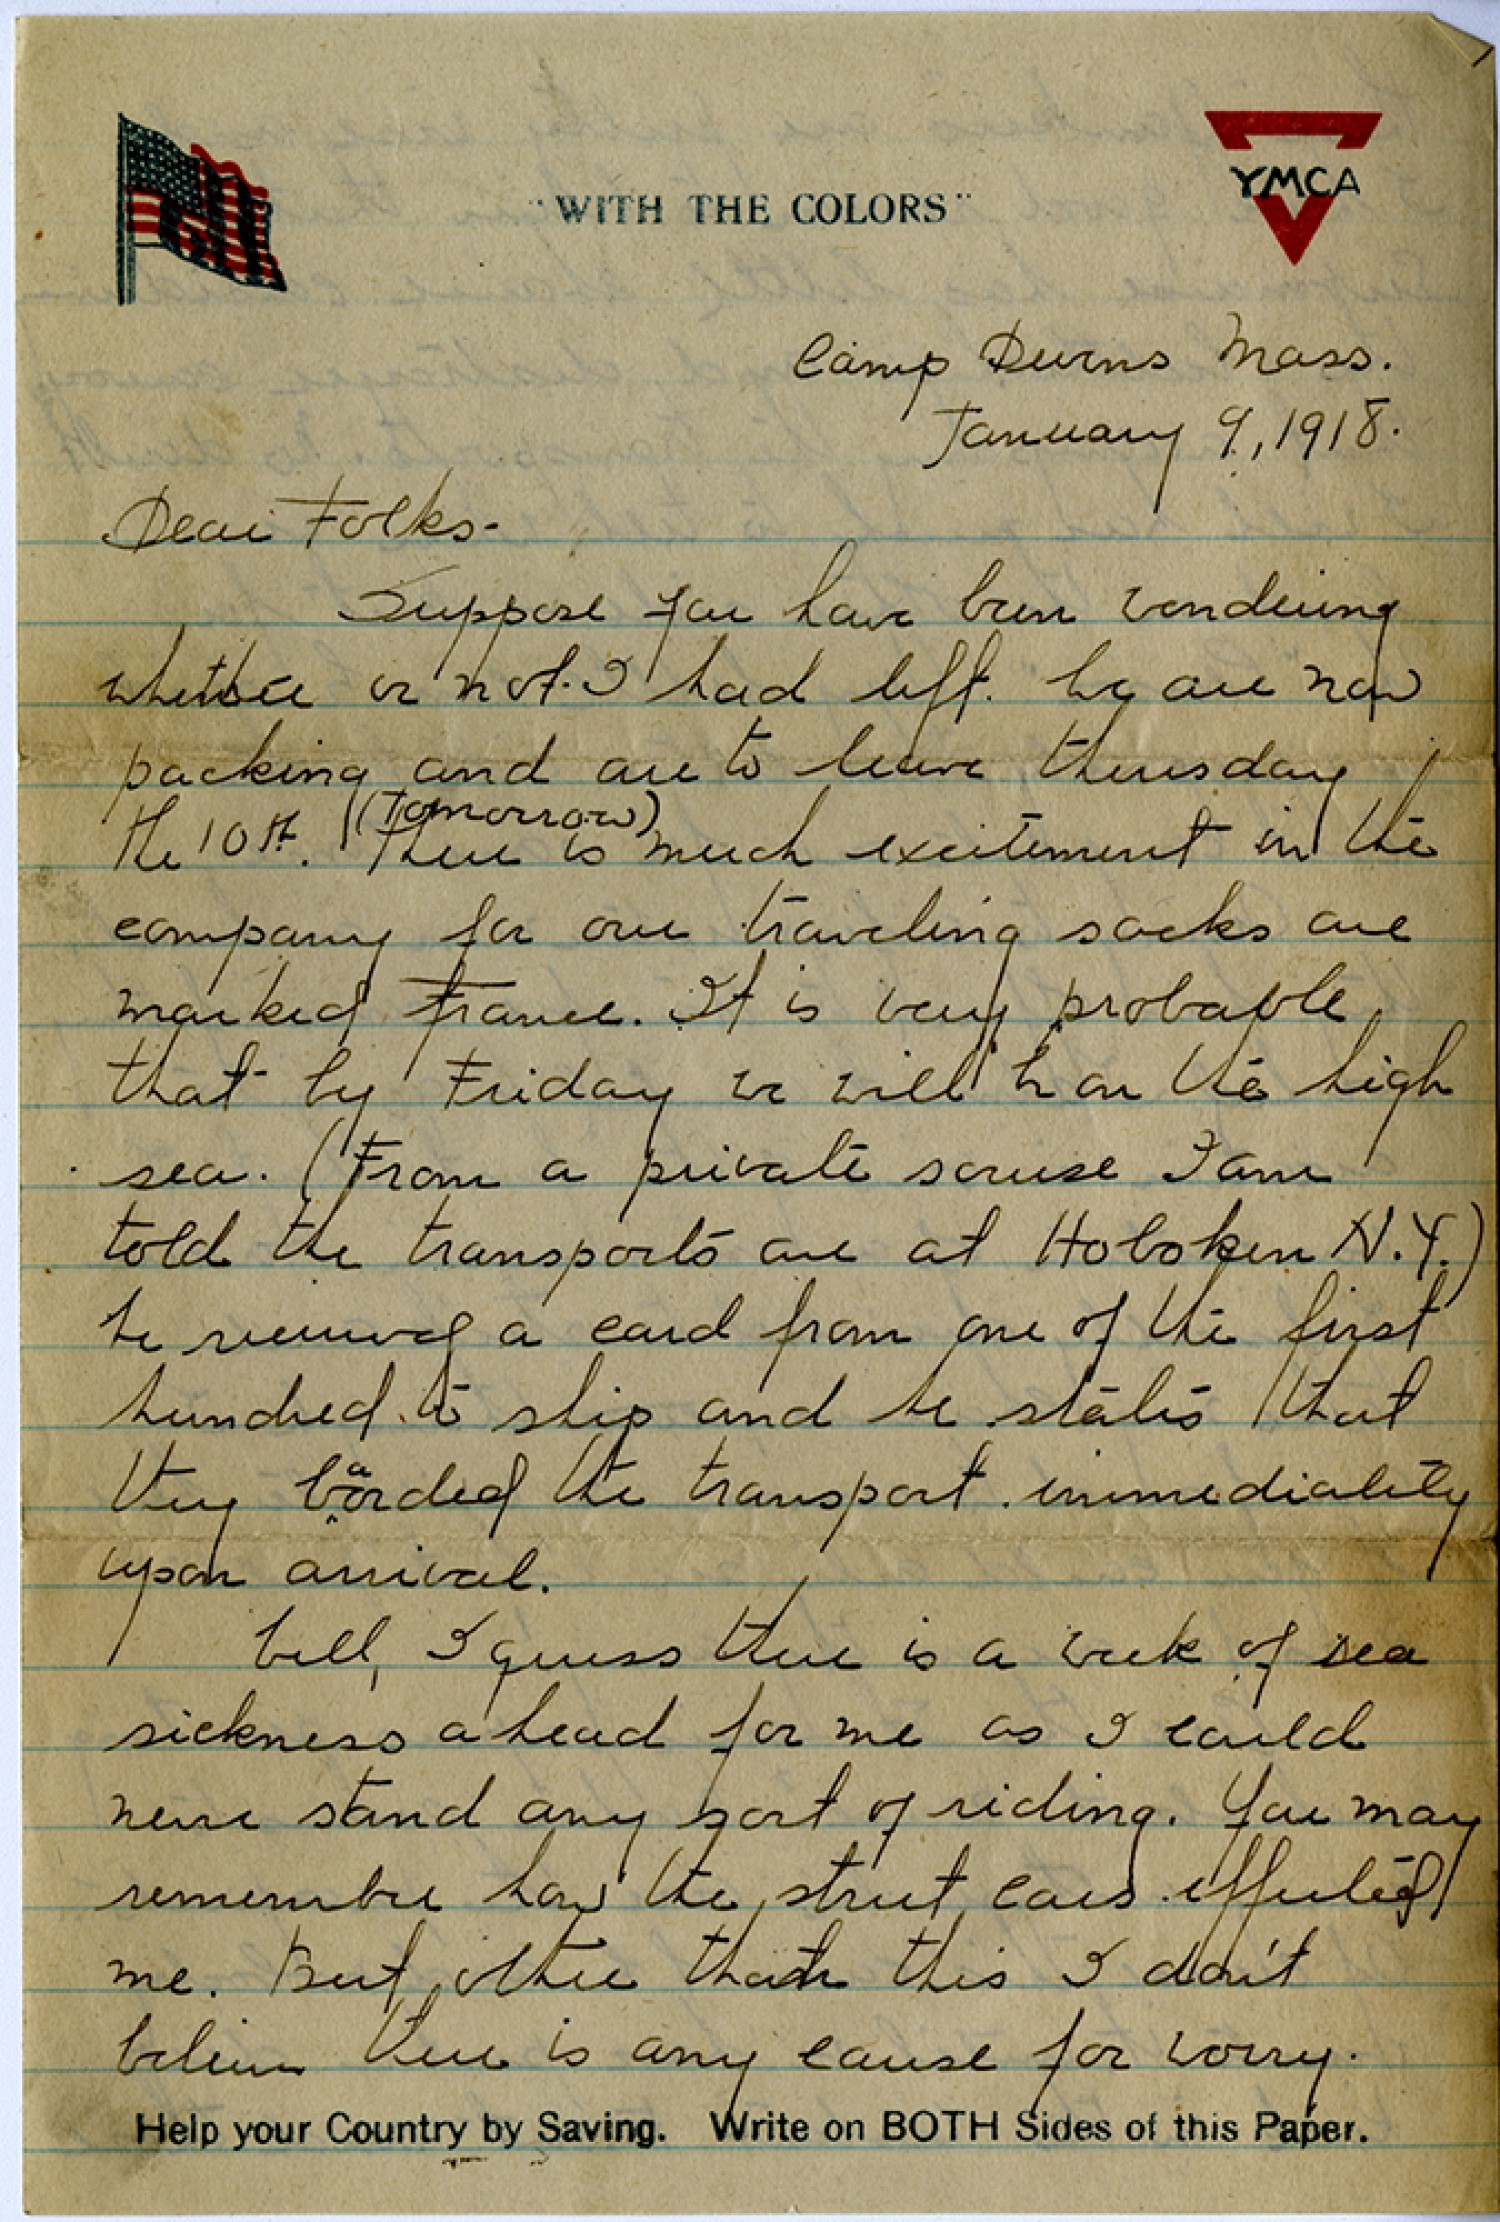 "WITH THE COLORS"
YMCA
Camp Devens Mass.
January 9, 1918.
Dear Folks-
Suppose you have been wondering
whether or not I had left. We are now
packing and are to leave thursday
(Tomorrow)
the 10th. There is much excitement in the
company for our traveling sacks are
marked France. It is very probable
that by Friday we will be on the high
sea. (From a private scruse I am
told the transports are at Hoboken N.Y.)
We received a card from one of the first
hundred to ship and he states that
they boarded the transport immediately
upon arrival.
Well, I guess there is a week of sea
sickness ahead for me as I could
never stand any sort of riding. You may
remember how the street cars effected
me. But other than this I don't
believe there is any cause for worry.
Help your Country by Saving. Write on BOTH Sides of this Paper.